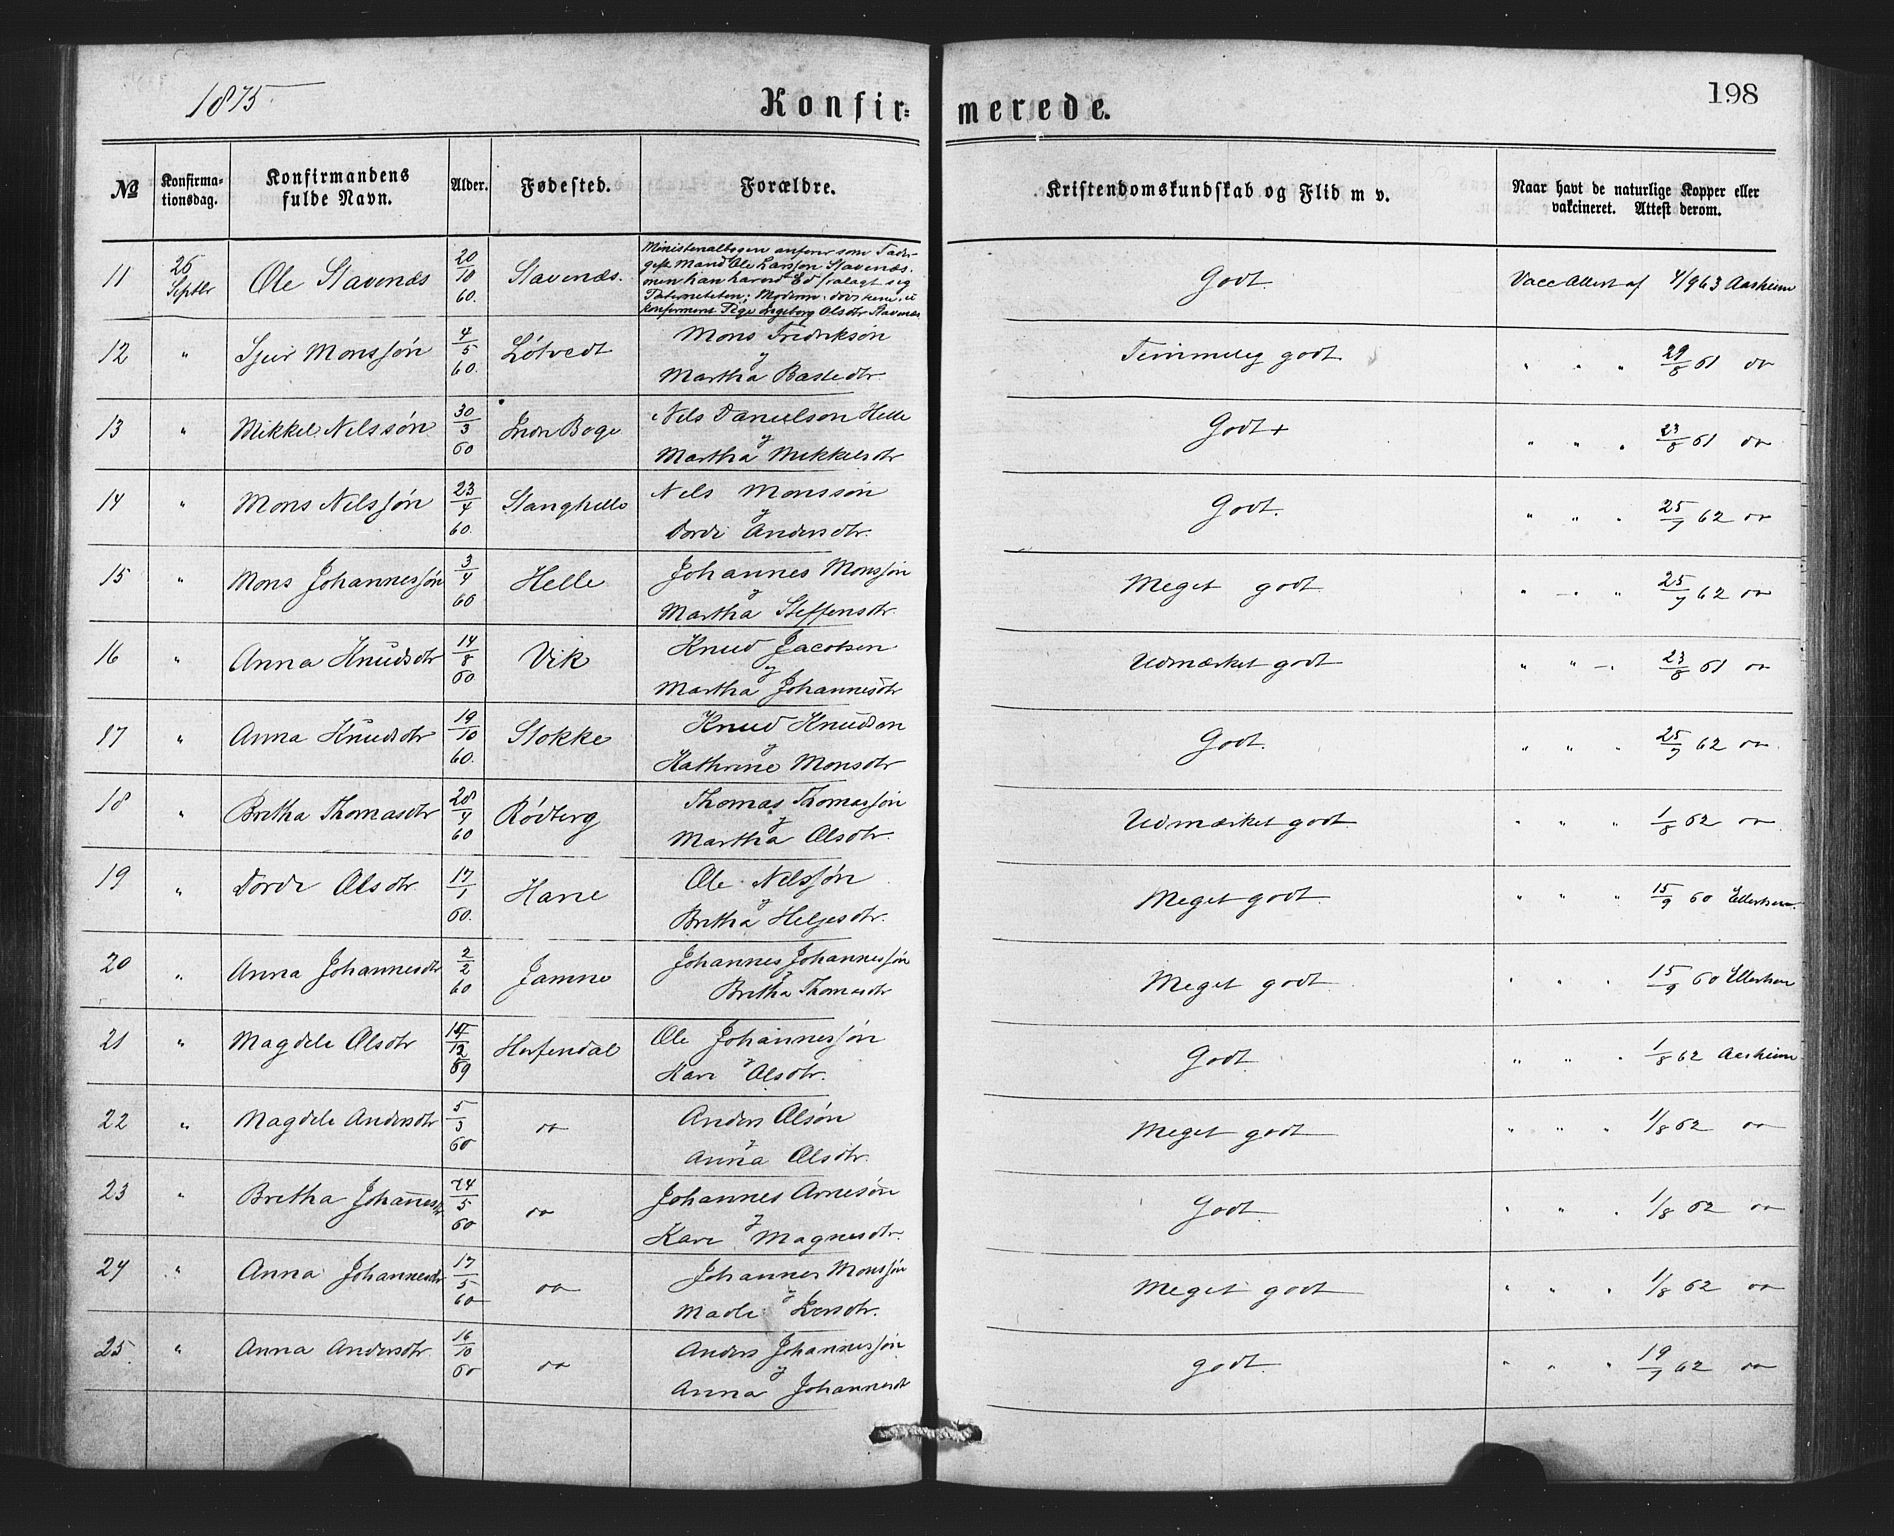 1875
Konfirmerede.
198
№
Konfirmationsdag.
Konfirmandens fulde Navn.
Alder.
Fødested.
Forældre.
Kristendomskundskab og Flid m v.
Naar havt de naturlige Kopper eller vakcineret. Attest derom.
11 26 Septbr Ole Stavenæs 20/10 60. Stavenæs. Ministerialbogen anfører som Fader gift Mand Ole Larssøn Stavenæs. men han har ved Ed fralagt sig Paterniteten; Moderen: konfirmeret Pige Ingeborg Olsdtr Stavenæs Godt. Vacc Attest af 4/9 63 Aasheim
12 " Sjur Monssøn 4/5 60. Løtvedt Mons Fredriksøn
og
Martha Bastedtr. Temmelig godt " " " 29/8 61 do
13 " Mikkel Nilssøn 30/3 60 Indr Boge Nils Danielson Helle
og
Martha Mikkelsdtr Godt + " " " 23/8 61 do
14 " Mons Nilssøn 23/4 60. Stanghelle Nils Monssøn
og
Dorde Andersdtr. Godt. " " " 25/7 62 do
15 " Mons Johannessøn 3/4 60 Helle Johannes Monssøn
og
Martha Steffensdtr. Meget godt " " " 25/7 62 do
16 " Anna Knudsdtr 14/8 60 Vik Knud Jacobsen
og
Martha Johannesdtr Udmærket godt " " " 23/8 61 do
17 " Anna Knudsdtr 19/10 60. Stokke Knud Knudsen
og
Kathrine Monsdtr Godt. " " " 25/7 62 do
18 " Bretha Thomasdtr 28/4 60 Rødberg Thomas Thomassøn
og
Martha Olsdtr. Udmærket godt. " " " 1/8 62 do
19 " Dorde Olsdtr. 17/1 60. Ole Nilssøn
og
Bretha Helgesdtr. Meget godt. " " " 15/9 60 Ellerhsen.
20 " Anna Johannesdtr 2/2 60 Jamne Johannes Johannessøn
og
Bretha Thomasdtr Meget godt " " " 15/9 60 Ellerhsen
21 " Magdele Olsdtr /12 59 Herfendal Ole Johannessøn
og
Kari Olsdtr. Godt. " " " 1/8 62 Aasheim
22 " Magdele Andersdtr 5/3 60 do Anders Olsøn
og
Anna Olsdtr. Meget godt " " " 1/8 62 do
23 " Bretha Johannesdtr 24/5 60 do Johannes Arnesøn
og
Kari Magnesdtr. Godt. " " " 1/8 62 do
24 " Anna Johannesdtr 17/5 60 do Johannes Monssøn
og
Madle Iversdtr. Meget godt " " " 1/8 62 do
25. " Anna Andersdtr. 16/10 60 do Anders Johannessøn
og
Anna Johannesdt godt. " " " 19/7 62 do